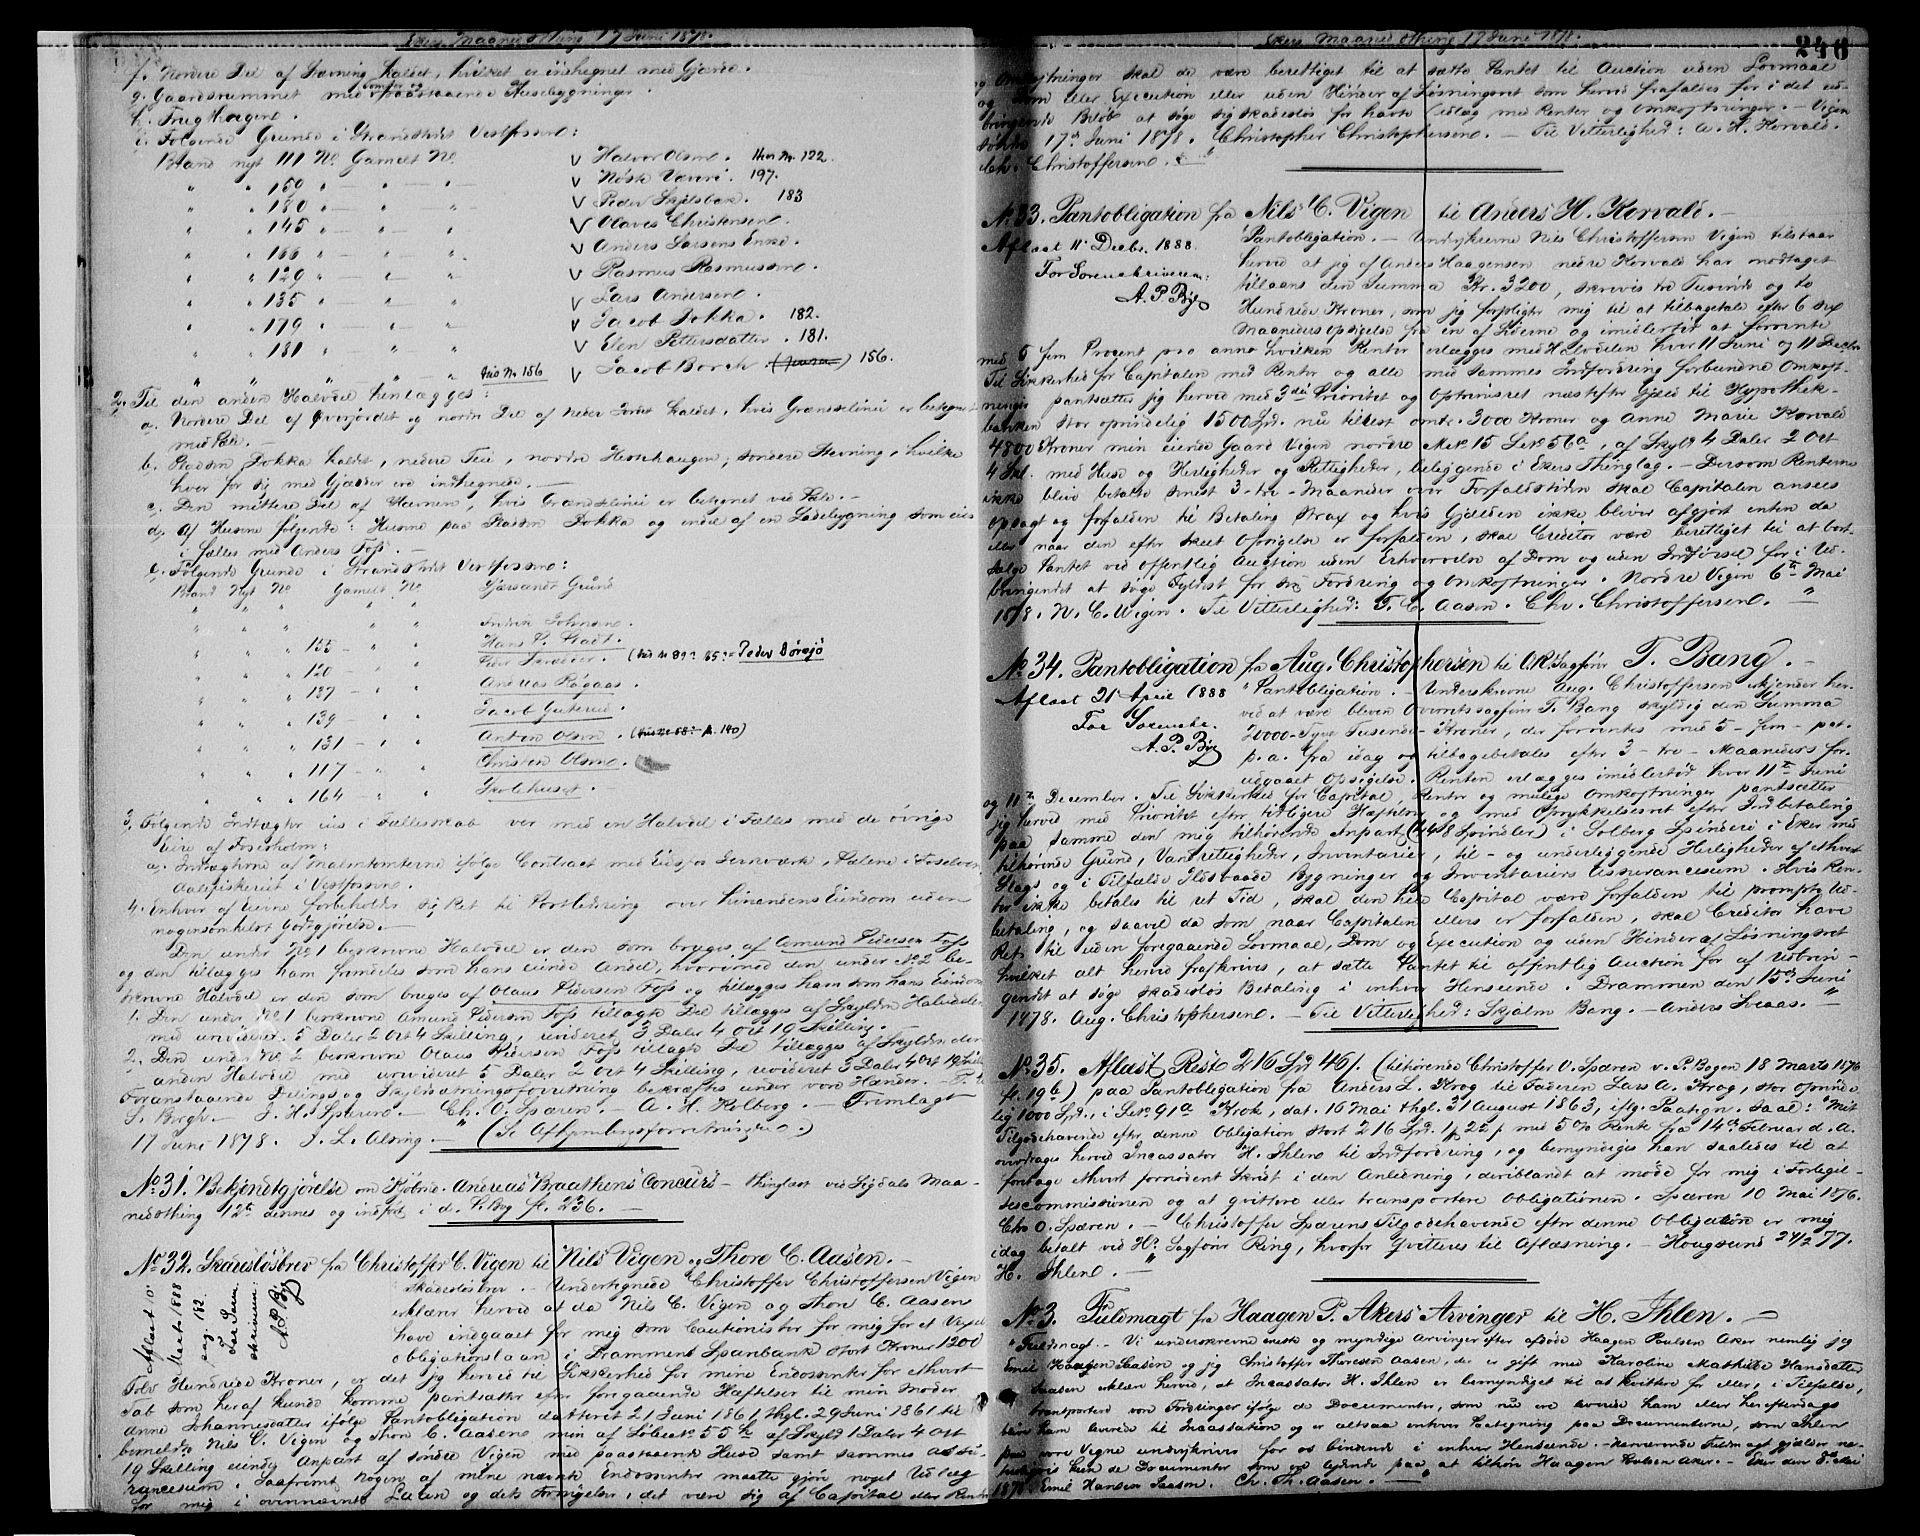 Ekers Maaneds Thing 17 Juni 1878.
f. Nordre Del af Stevning kaldet, hvilket er indhegnet med Gjærde.
g. Gaardsrummet med paastaaende Husebygninger.
h. Frugt Haugen.
i. Følgende Grunde i Strandstedet Vestfossen:
Brand nyt 111 No Gamelt No V Halvor Olsen. Hus Nr. 122.
" " 159 " — " — " V Nøsk Væveri. 197.
" " 180 " — " — " V Peder Skjelsbæk. 183
" " 145 " — " — " V Olaves Christensen.
" " 166 " — " — " V Anders Larsens Enke.
" " 129 " — " — " V Rasmus Rasmussen.
" " 135 " — " — " V Lars Andersen.
" " 179 " — " — " V Jacob Dokka. 182.
" " 181 " — " — " V Elen Pettersdatter. 181.
" " " " — " Hus Nr 156 V Jacob Borch. 156.
2. Til den anden Halvdel henlægges:
a. Nordre Del af Øverjordet og nordre Del af Nedre Jordet kaldet, hvis Grændselinie er betegnet
med Pæle. —
b. Pladsen Dokka kaldet, nedre Teie, nordre Hestehaugen, søndre Stevning, hvilke
hver for sig med Gjærder ere indhegnede. —
c. Den midtere Del af Havnen, hvis Grændselinie er betegnet ved Pæle. —
d. Af Husene følgende: Husene paa Pladsen Dokka og endel af en Ladebygning som eies
i fælles med Anders Foss. —
e. Følgende Grunde i Strandstedet Vestfossen:
Brand Nyt No Gamelt No Gjørsander Grund
" " " " " Fredrik Johnsen.
" " " " " Hans P. Stadt.
" " " 155 — " " Peder Peder Børesjø
" " " 120 — " " Andreas Røgaas.
" " " 137 — " " Jacob Guterud.
" " " 139 — " " Anton Olsen.
" " " 131 — " " Christen Olsen.
" " " 117 — " "
" " " 164 — " " Skolehuset. —
3. Følgende Indtægter eies i Fællesskab hver med en Halvdel i Fælles med de øvrige
Eiere af Fossesholm:
a. Indtægterne af Malmtomterne ifølge Contract med Eidsfos Jernværk,
Aalefiskeriet i Vestfossen.
4. Enhver af Eierne forbeholder sig Ret til Postledning over hinandens Eiendom uden
nogensomhelst Godtgjørelse. —
Den under No 1 beskrevne Halvdel er den som bruges af Amund Pedersen Foss
og den tillægges ham fremdeles som hans eiende Andel, hvorimod den under No 2 be-
skrevne Halvdel er den som bruges af Olaus Pedersen Foss og tillægges ham som hans Eiendom
1. Den under No 1 beskrevne Amund Pedersen Foss tillagte Del tillægges af Skylden Halvdelen
med urevideret 5 Daler 2 Ort 4 Skilling, revideret 3 Daler 4 Ort 19 Skilling.
2. Den under No 2 beskrevne Olaus Pedersen Foss tillagte Del tillægges af Skylden den
anden Halvdel med urevideret 5 Daler 2 Ort 4 Skilling, revideret 3 Daler 4 Ort 19 Skill.
Foranstaaende Delings og Skyldsætningsforretning bekræftes under vore Hænder. —
S. Borgh. — J. H. Spærend. — Ch. O. Spæren. — A. H. Kolberg. — Fremlagt
17 Juni 1878. J. L. Alsing. — " (Se Afhjemlingsforretningen.)
No 31. Bekjendtgjørelse om Kjøbmd. Andreas Braathens Concurs — thinglæst ved Sigdals Maa-
nedsthing 12te dennes og indført i d. P. Bog fl. 236. —
No 32. Skadesløsbrev fra Christoffer C. Vigen til Nils Vigen og Thore C. Aasen. —
Aflæst 10
Marts 1888
pag. 182.
For Soren-
skriveren:
A. P. By
Skadesløsbrev. — Undertegnede Christoffer Christoffersen Vigen
erklærer herved at da Nils C. Vigen og Thore C. Aasen
have indgaaet for mig som Cautionister for mig for et Vexel
obligationslaan i Drammens Sparebank stort Kroner 1200
Tolv Hundrede Kroner, er det jeg herved til Sikkerhed for mine Endossenter for ethvert
Tab som heraf kunde komme pantsætter efter foregaaende Hæftelser til min Moder
Anne Johannesdatter ifølge Pantobligation datteret 21 Juni 1861 thgl. 29 Juni 1861 til
bemeldte Nils C. Vigen og Thore C. Aasen min af Løbe No 55 b af Skyld 1 Daler 4 Ort
19 Skilling eiende Anpart af søndre Vigen med paastaaende Huse samt sammes Assu-
rancesum. Saafremt nogen af mine nævnte Endossenter maatte gjøre noget Udlæg
for mig i ovennævnte Laan og dets Fornyelser, det være sig af Capital eller Renter
Ekers Maaneds Thing 17 Juni 1878.
246
og Omkostninger skal de være berettiget til at sætte Pantet til Auction uden Lovmaal
og Dom eller Execution eller uden Hinder af Løsningsret som herved frafaldes for i det ud-
bringende Beløb at søge sig skadesløs for havte Udlæg med Renter og Omkostninger. — Vigen
søndre 17de Juni 1878. Christopher Christophersen. — Til Vitterlighed: A. H. Horvald.
Christoffersen. —
No 33. Pantobligation fra Nils C. Vigen til Anders H. Korvald. —
Aflæst 11' Decbr. 1888.
For Sorenskriveren:
A. P. By
Pantobligation. — Undertegnede Nils Christoffersen Vigen tilstaar
herved at jeg af Anders Haagensen nedre Korvald har modtaget
tillaans den Summa Kr. 3200, skrevis tre Tusinde og to
Hundrede Kroner, som jeg forpligter mig til at tilbagebetale efter 6 sex
Maaneders Opsigelse fra en af Siderne og imidlertid at forrente
med 5 fem Procent pro anno hvilken Renter erlægges med Halvdelen hver 11 Juni og 11 Decbr.
Til Sikkerhed for Capitalen med Renter og alle med sammes Indfordring forbundne Omkost-
ninger pantsætter jeg herved med 3die Prioritet og Optrinsret næstefter Gjæld til Hypothek-
banken stor oprindelig 1500 Spd. nu tilrest omtr. 3000 Kroner og Anne Marie Korvald
4800 Kroner min eiende Gaard Vigen nordre Mat. No 15 Løb. No 56a, af Skyld 4 Daler 2 Ort
4 Skl. med Huse og Herligheder og Rettigheder, beliggende i Ekers Thinglag. — Dersom Renterne
ikke blive betalte senest 3 - tre - Maaneder over Forfaldstiden skal Capitalen ansees
opsagt og forfalden til Betaling strax og hvis Gjælden ikke bliver afgjort enten da
eller naar den efter skeet Opsigelse er forfalden, skal Creditor være berettiget til at bort-
sælge Pantet ved offentlig Auction uden Erhvervelse af Dom og uden Indførsel for i Ud-
bringendet at søge Fyldest for sin Fordring og Omkostninger. Nordre Vigen 6te Mai
1878. N. C. Wigen. Til Vitterlighed: T. C. Aasen. Chr. Christoffersen. — "
No 34. Pantobligation fra Aug. Christophersen til OR.Sagfører T. Bang. —
Aflæst 21' April 1888
For Sorenskr.
A. P. By
"Pantobligation. — Underskrevne Aug. Christoffersen erkjender her-
ved at være bleven Overretssagfører T. Bang skyldig den Summa
20000 - Tyve Tusende - Kroner, der forrentes med 5 - fem - pct.
p. a. fra idag og tilbagebetales efter 3 - tre - Maaneders for-
udgaaet Opsigelse. Renten erlægges imidlertid hver 11te Juni
og 11te December. Til Sikkerhed for Capital, Renter og mulige Omkostninger pantsætter
jeg herved med Prioritet efter tidligere Hæftelser og med Oprykkelsesret efter Indbetaling
paa samme den mig tilhørende Anpart (448 Spindler) i Solberg Spinderi i Eker med
tilhørende Grund, Vandrettigheder, Inventarier, til- og underliggende Herligheder af ethvert
Slags og i Tilfælde Ildsvaade Bygninger og Inventariers Assurancesum. Hvis Ren-
ter ikke betales til ret Tid, skal den hele Capital være forfalden til prompte Ud-
betaling, og saavel da som naar Capitalen ellers er forfalden, skal Creditor have
Ret til uden foregaaende Lovmaal, Dom og Execution og uden Hinder af Løsningsret
hvilket alt herved frafskrives, at sætte Pantet til offentlig Auction for af Udbrin-
gendet at søge skadesløs Betaling i enhver Henseende. Drammen den 15de Juni
1878. Aug. Christophersen. — Til Vitterlighed: Skjalm Bang. — Anders Sveaas. — "
No 35. Aflæst Rest 216 Spd. 46 β. (tilhørende Christoffer O. Spæren v. P. Bogen 18 Marts 1876
fl. 196) paa Pantobligation fra Anders L. Krog til Faderen Lars A. Krog, stor oprinde-
lig 1000 Spd., i Løb. No 91a Krok, dat. 16 Mai thgl. 31 August 1863, iflg. Paategn. saal: "Mit
Tilgodehavende efter denne Obligation stort 216 Spd. 1 # 22 β med 5 % Rente fra 14de Februar d. A.
overdrages herved Incassator H. Ihlen til Indfordring, og bemyndiges han saaledes til at
foretage ethvert fornødent Skridt i den Anledning, deriblandt at møde for mig i Forligel-
sescommissionen og at qvittere eller transportere Obligationen. Spæren 10 Mai 1876.
Chr. O. Spæren. — Christoffer Spærens Tilgodehavende efter denne Obligation er mig
idag betalt ved Hr. Sagfører Ring, hvorfor Qvitteres til Aflæsning. — Hougsund 24/2 77.
H. Ihlen. — "
No 3. Fuldmagt fra Haagen P. Akers Arvinger til H. Ihlen. —
"Fuldmagt. — Vi underskrevne eneste og myndige Arvinger efter afdøde Haagen Paulsen Aker nemlig jeg
Emil Hansen Aasen og jeg Christoffer Thoresen Aasen, der er gift med Karoline Mathilde Hansdatter
Aasen erklære herved, at Incassator H. Ihlen er bemyndiget til at kvittere for eller, i Tilfælde,
transportere vore Fordringer ifølge de Documenter, som nu ere leverede ham eller herefterdags
blive ham leverede til Incassation og er altsaa enhver Paategning paa Documenterne, som Ihlen
paa vore Vegne underskrives for os bindende i enhver Henseende. — Nærværende Fuldmagt gjælder na-
turligvis kun de Documenter som ere lydende paa at tilhøre Haagen Paulsen Aker. — Eker den 5. Mai
1878. Emil Hansen Aasen. Ch. Th. Aasen. — "